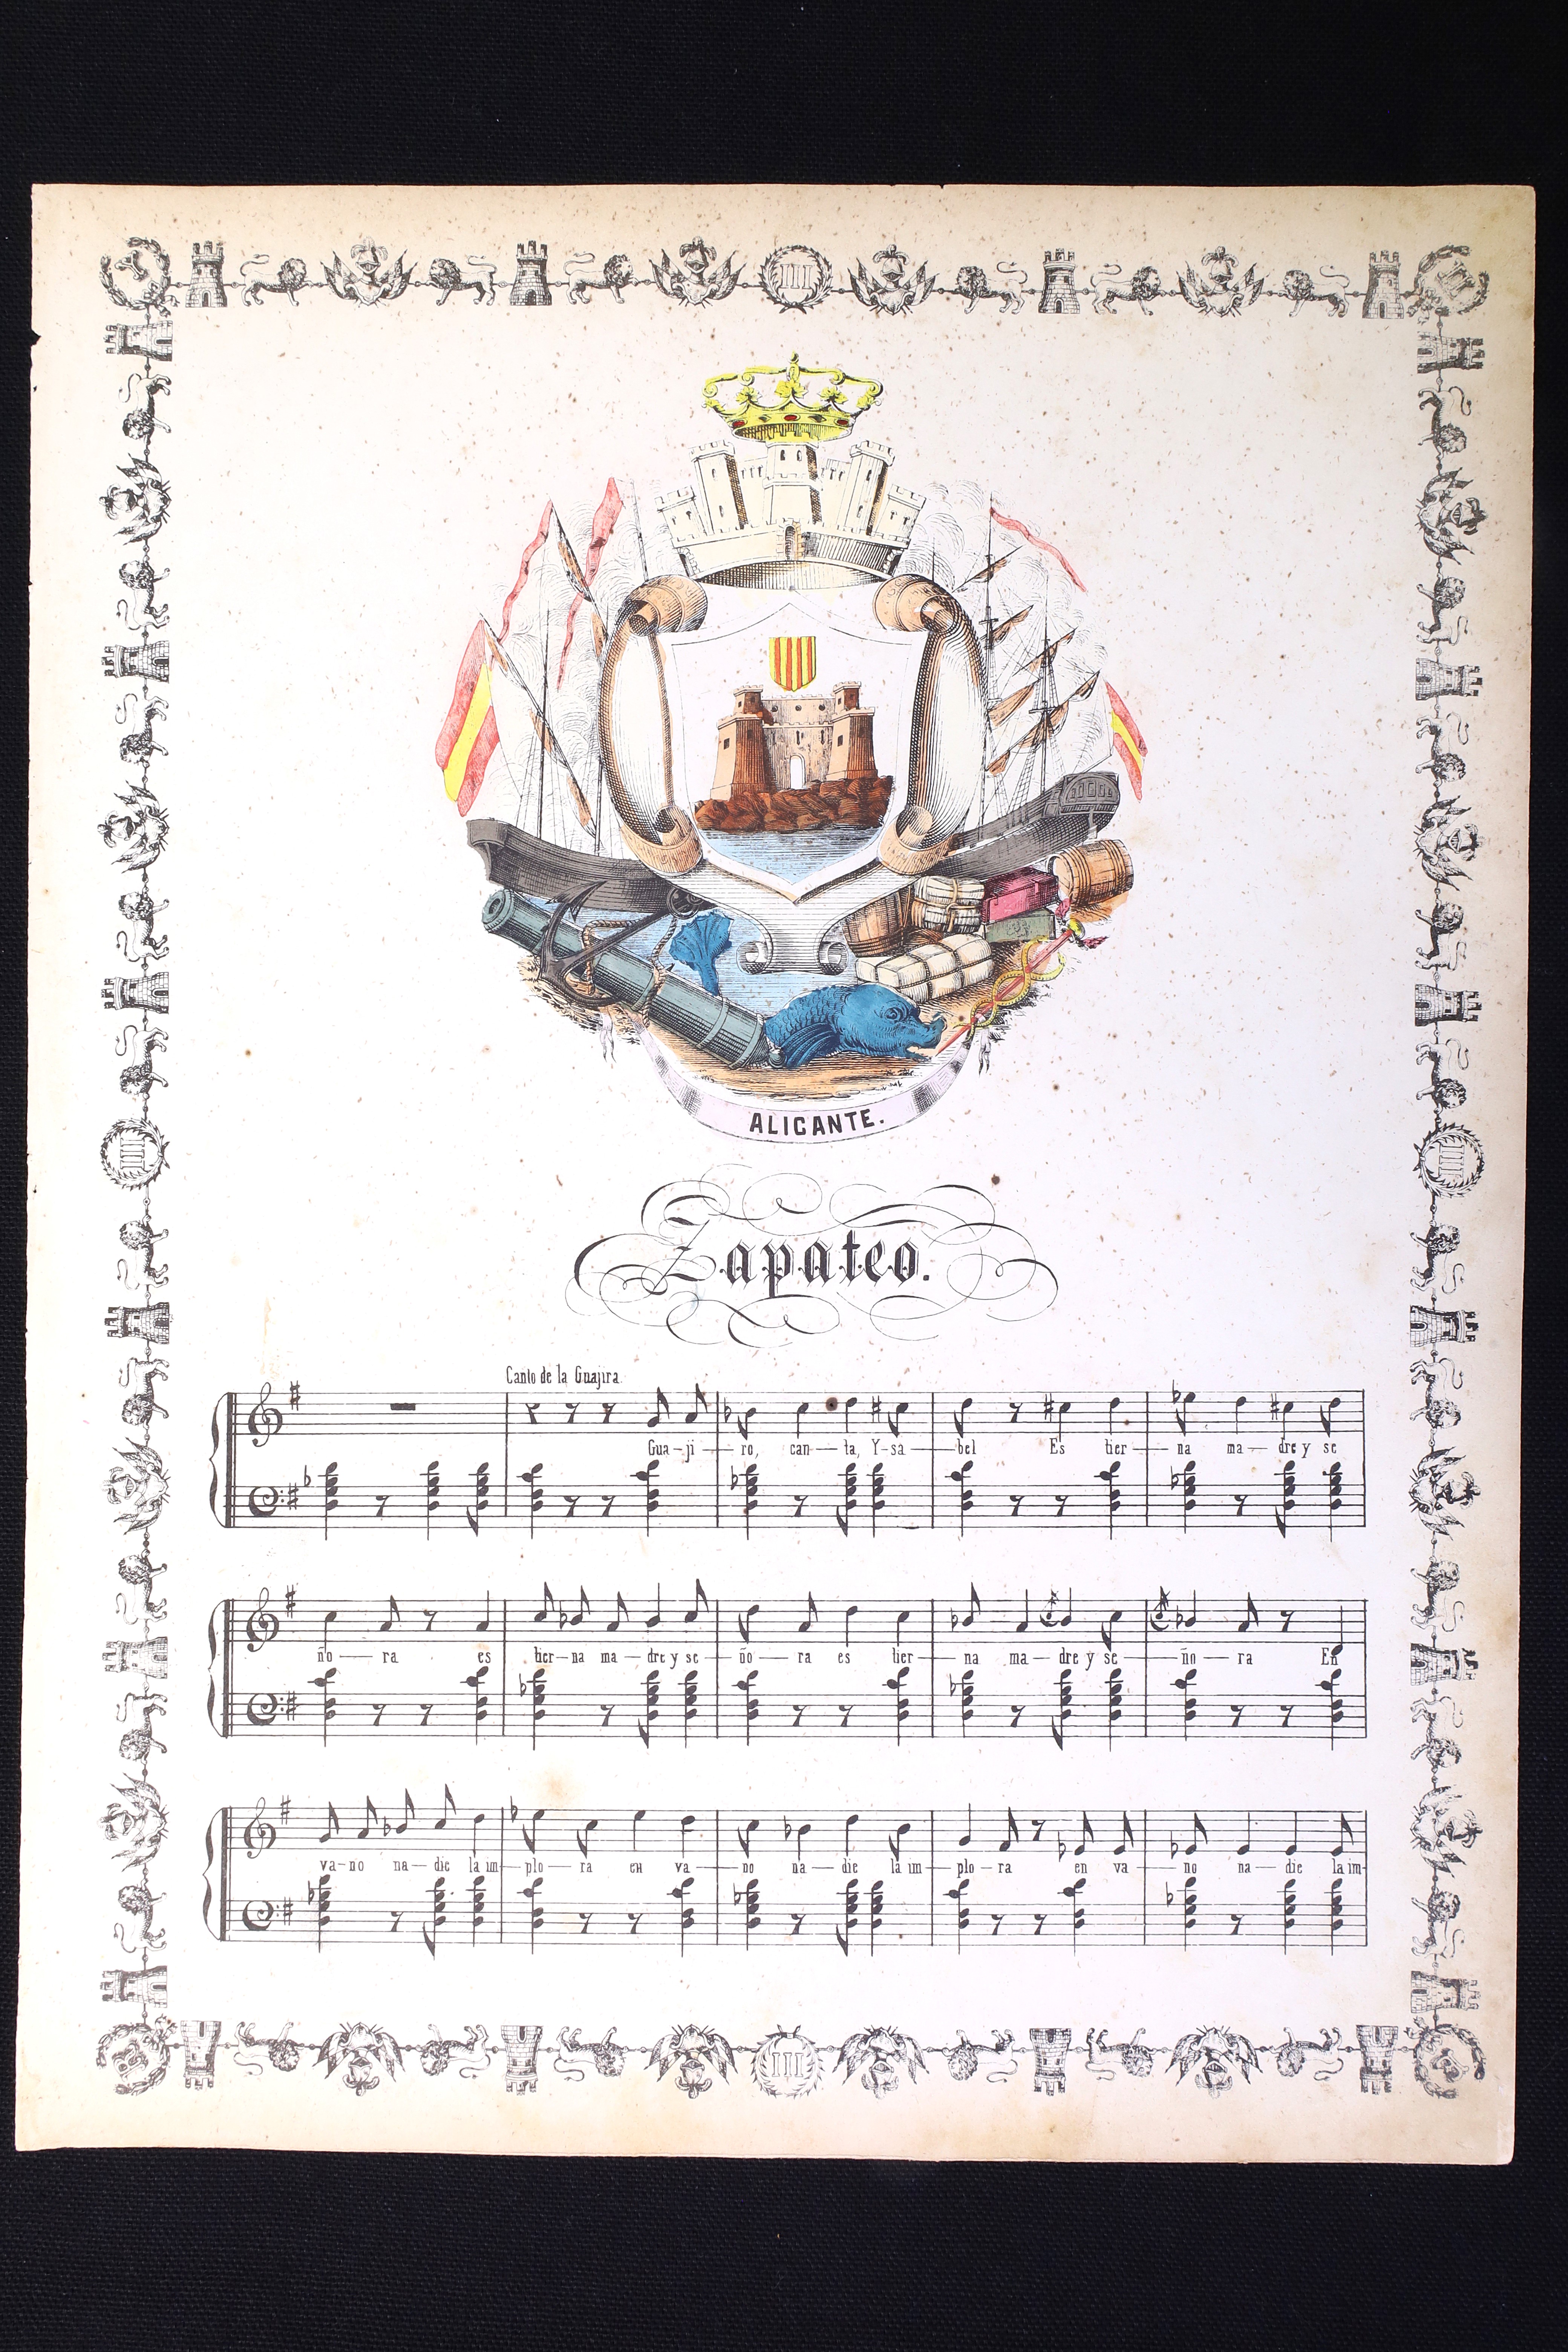 III
ALICANTE.
Zapateo.
Canto de la Guajira
Gua-ji-ro, can-ta, Y-sa-bel Es tier-na ma-dre y se
ño-ra es tier-na ma-dre y se-ño-ra es tier-na ma-dre y se-ño-ra En
va-no na-die la im-plo-ra en va-no na-die la im-plo-ra en va-no na-die la im-
III